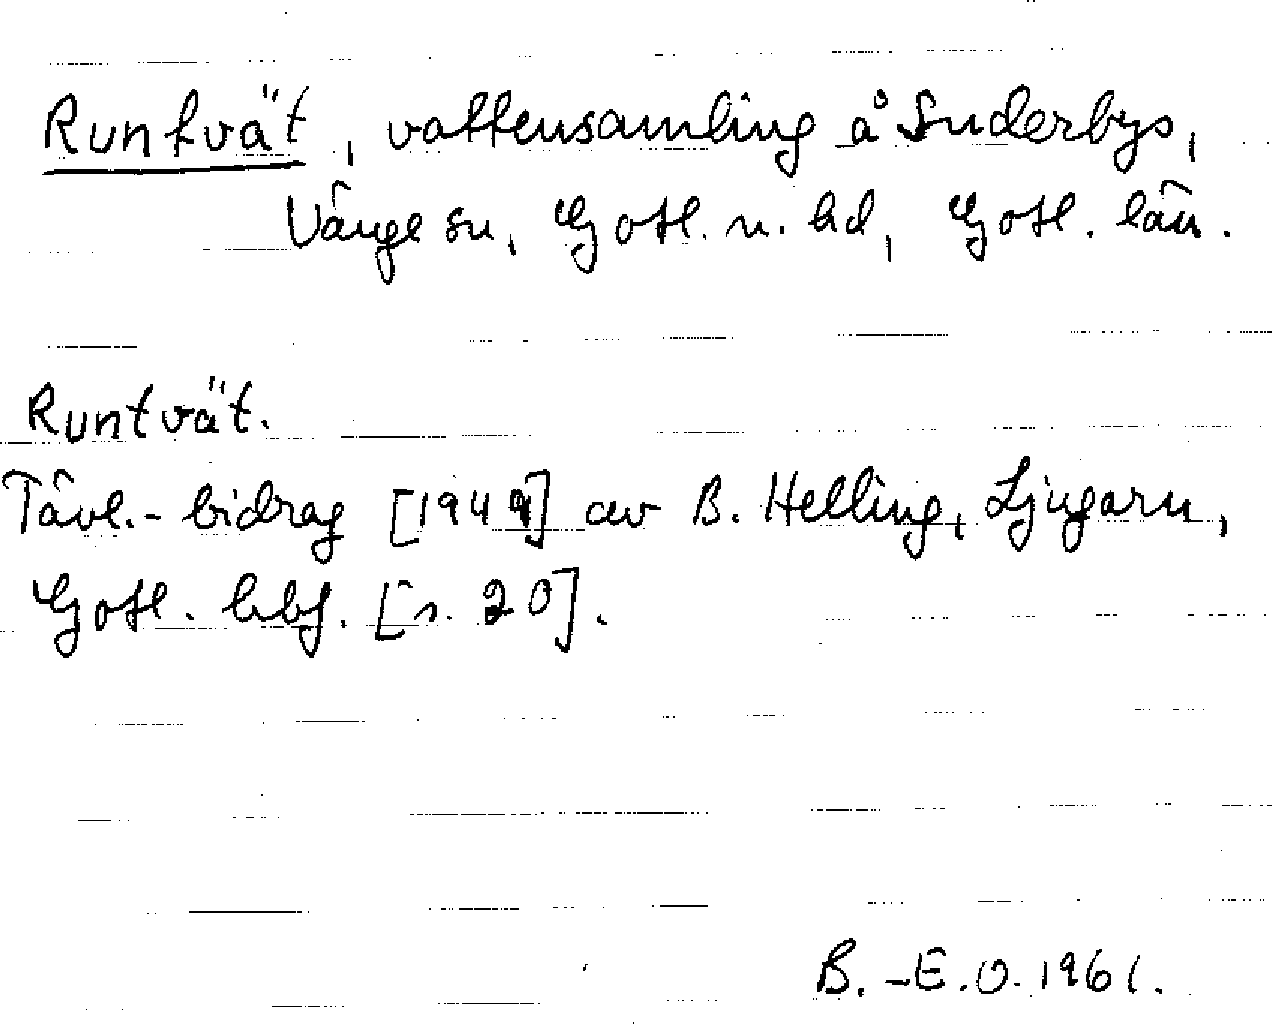 Runtvät, vattensamling å Suderbys,
Vänge sn, Gotl. n. hd, Gotl. län.
Runtvät.
Tävl.-bidrag [1949] av B. Helling, Ljugarn,
Gotl. hbf. [s. 20].
B.-E.O. 1961.